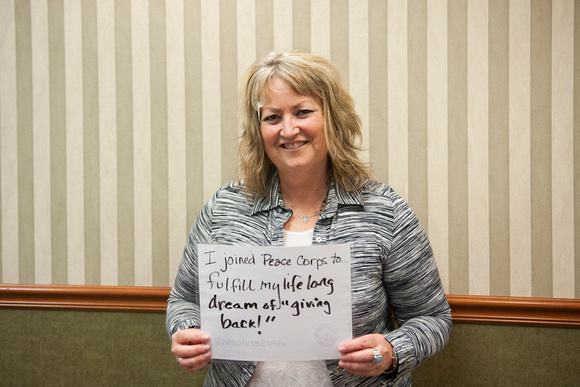 I joined Peace Corps to...
fulfill my life long
dream of "giving
back!"